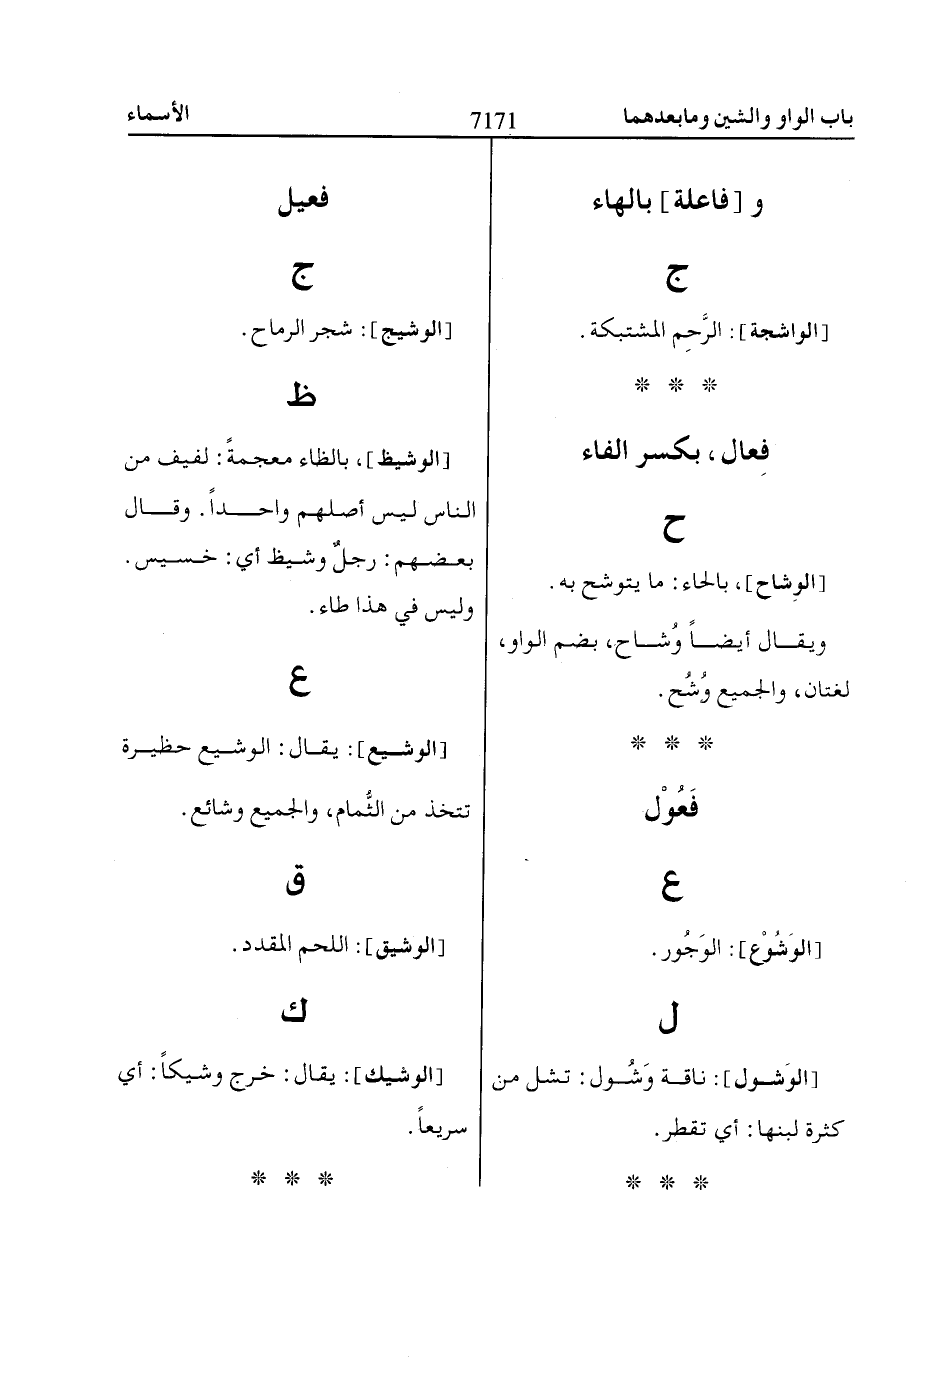 باب الواو والشين وما بعدهما
7171
الأسماء
و [فاعلة] بالهاء
ج
[الواشجة]: الرَّحِم المشتبكة.
* * *
فِعال، بكسر الفاء
ح
[الوِشاح]، بالحاء: ما يتوشح به.
ويقال أيضاً وُشاح، بضم الواو،
لغتان، والجميع وُشُح.
* * *
فَعُوْل
ع
[الوَشُوْع]: الوَجُور.
ل
[الوَشول]: ناقة وَشُول: تشل من
كثرة لبنها: أي تقطر.
* * *
فعيل
ج
[الوشيج]: شجر الرماح.
ظ
[الوشيظ]، بالظاء معجمةً: لفيف من
الناس ليس أصلهم واحداً. وقال
بعضهم: رجلٌ وشيظ أي: خسيس.
وليس في هذا طاء.
ع
[الوشيع]: يقال: الوشيع حظيرة
تتخذ من الثُّمام، والجميع وشائع.
ق
[الوشيق]: اللحم المقدد.
ك
[الوشيك]: يقال: خرج وشيكاً: أي
سريعاً.
* * *